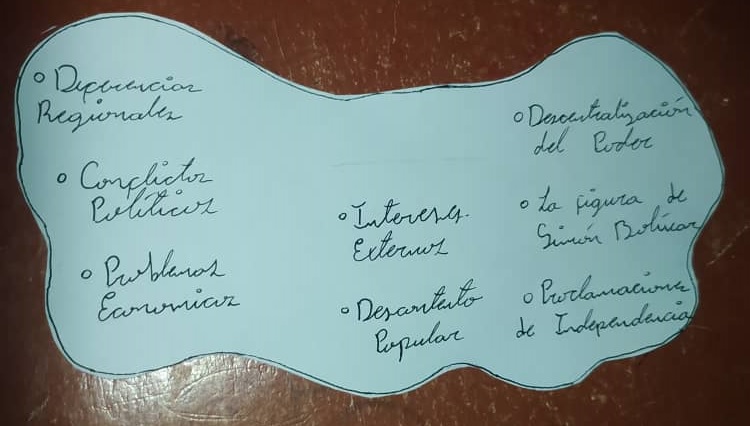 Diferencias
Regionales
Conflictos
Políticos
Problemas
Economicos
Intereses.
Externos
Descontento
Popular
Descentralización
del Poder
La figura de
Simón Bolívar
Proclamaciones
de Independencia